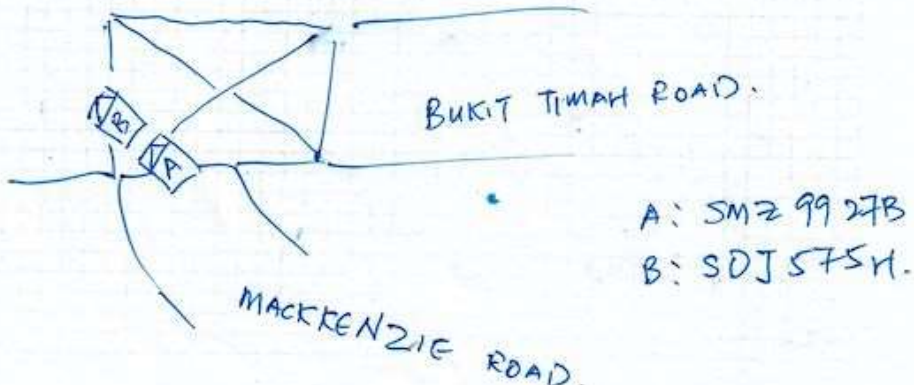 BUKIT TIMAH ROAD.
B
A
A: SMZ 9927B
B: SDJ 575H.
MACKKENZIE ROAD.